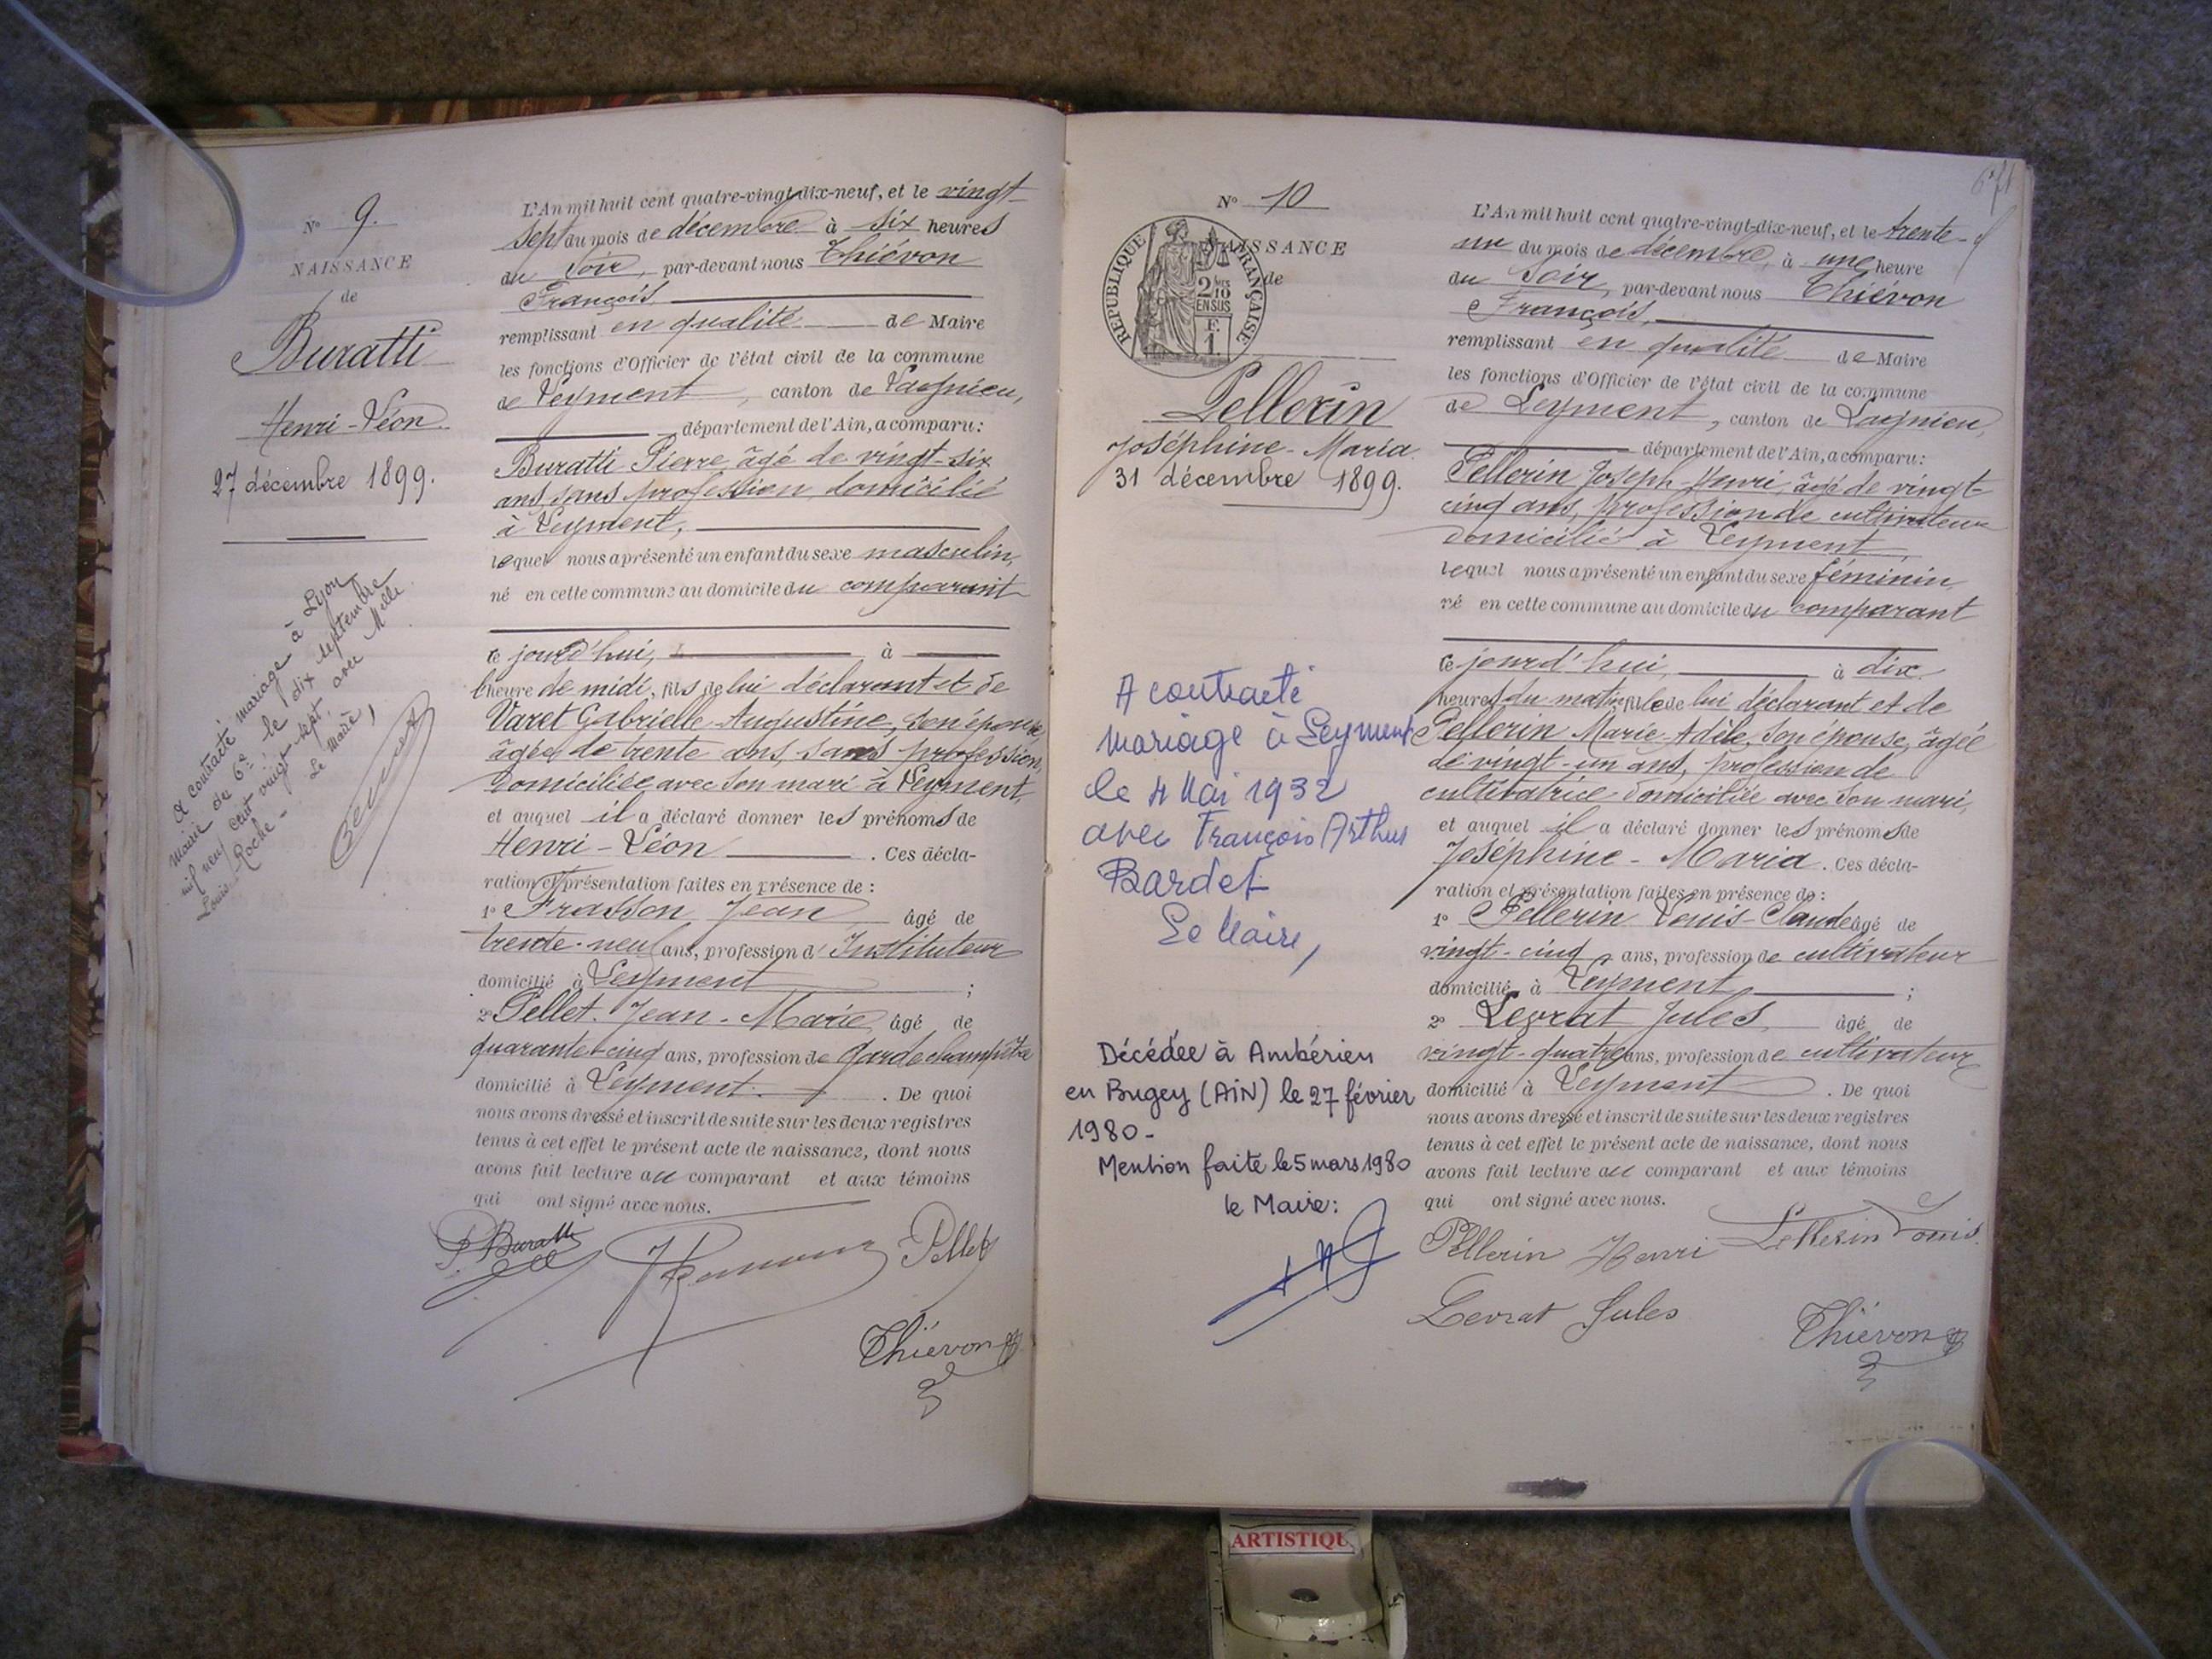 N° 9.
NAISSANCE
de
Buratti
Henri-Léon
27 décembre 1899.
A contracté mariage à Lyon
mairie du 6e, le dix septembre
mil neuf cent vingt sept, avec Melle
Louise Roche -
Le maire,
L'An mil huit cent quatre-vingt-dix-neuf, et le vingt-
sept du mois de décembre à six heures
du soir, par-devant nous Thiévon
François
remplissant en qualité de Maire
les fonctions d'Officier de l'état civil de la commune
de Leyment, canton de Lagnieu,
département de l'Ain, a comparu:
Buratti Pierre, âgé de vingt-six
ans, sans profession, domicilié
à Leyment,
lequel nous a présenté un enfant du sexe masculin,
né en cette commune au domicile du comparant
ce jourd'hui, à
l'heure de midi, fils de lui déclarant et de
Varet Gabrielle-Augustine, son épouse,
âgée de trente ans, sans profession,
domiciliée avec son mari à Leyment,
et auquel il a déclaré donner les prénoms de
Henri-Léon . Ces décla-
ration et présentation faites en présence de :
1° Frasson Jean âgé de
trente-neuf ans, profession d'Instituteur
domicilié à Leyment ;
2° Pellet Jean-Marie âgé de
quarante-cinq ans, profession de Garde champêtre
domicilié à Leyment. . De quoi
nous avons dressé et inscrit de suite sur les deux registres
tenus à cet effet le présent acte de naissance, dont nous
avons fait lecture au comparant et aux témoins
qui ont signé avec nous.
P. Buratti
Pellet
Thiévon
N° 10
NAISSANCE
de
RÉPUBLIQUE FRANÇAISE
2/10
EN SUS
F.
1.
Pellerin
Joséphine-Maria
31 décembre 1899.
A contracté
mariage à Leyment
le 4 Mai 1932
avec François Arthur
Bardet
Le Maire,
Décédée à Ambérieu
en Bugey (AIN) le 27 février
1980-
Mention faite le 5 mars 1980
le Maire:
L'An mil huit cent quatre-vingt-dix-neuf, et le trente-
un du mois de décembre, à une heure
du soir, par-devant nous Thiévon
François,
remplissant en qualité de Maire
les fonctions d'Officier de l'état civil de la commune
de Leyment, canton de Lagnieu,
département de l'Ain, a comparu:
Pellerin Joseph-Henri, âgé de vingt-
cinq ans, profession de cultivateur
domicilié à Leyment,
lequel nous a présenté un enfant du sexe féminin,
né en cette commune au domicile du comparant
ce jourd'hui, à dix
heures du matin, fille de lui déclarant et de
Pellerin Marie-Adèle, son épouse, âgée
de vingt-un ans, profession de
cultivatrice domiciliée avec son mari,
et auquel il a déclaré donner les prénoms de
Joséphine-Maria. Ces décla-
ration et présentation faites en présence de :
1° Pellerin Louis-Claude âgé de
vingt-cinq ans, profession de cultivateur
domicilié à Leyment ;
2° Levrat Jules âgé de
vingt-quatre ans, profession de cultivateur
domicilié à Leyment . De quoi
nous avons dressé et inscrit de suite sur les deux registres
tenus à cet effet le présent acte de naissance, dont nous
avons fait lecture au comparant et aux témoins
qui ont signé avec nous.
Pellerin Henri Pellerin Louis
Levrat Jules
Thiévon
ARTISTIQU